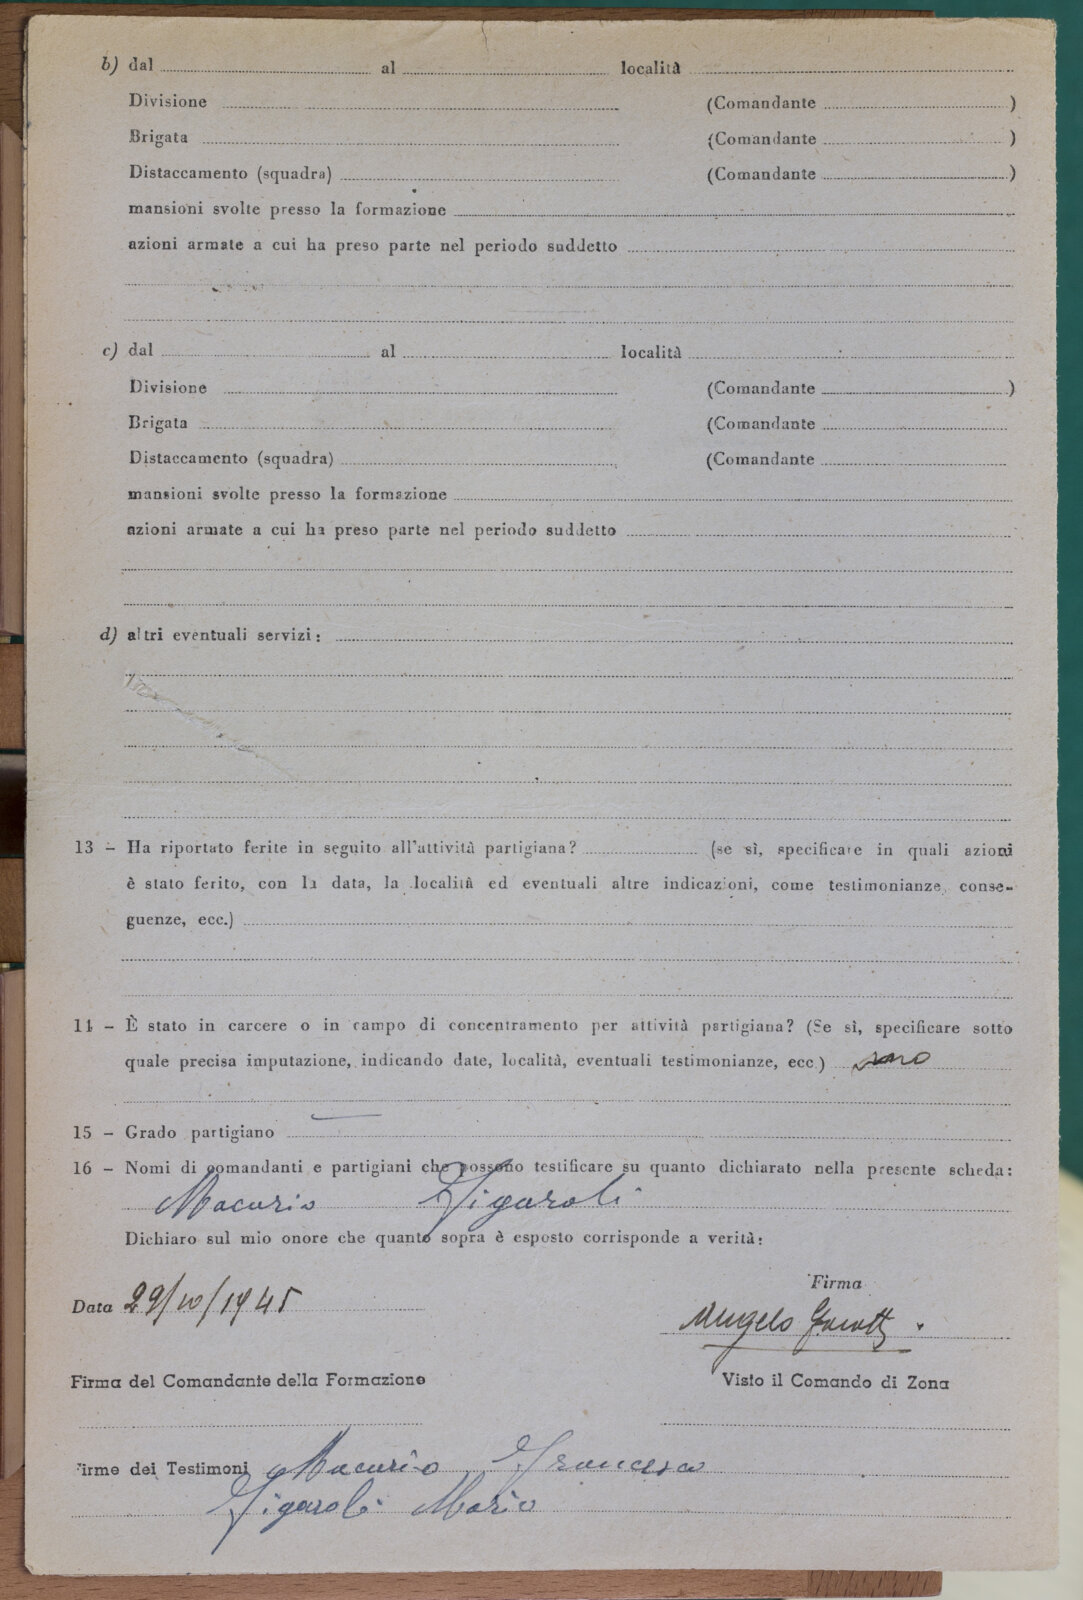 b) dal al località
Divisione (Comandante )
Brigata (Comandante )
Distaccamento (squadra) (Comandante )
mansioni svolte presso la formazione
azioni armate a cui ha preso parte nel periodo suddetto
c) dal al località
Divisione (Comandante )
Brigata (Comandante
Distaccamento (squadra) (Comandante
mansioni svolte presso la formazione
azioni armate a cui ha preso parte nel periodo suddetto
d) altri eventuali servizi:
13 – Ha riportato ferite in seguito all'attività partigiana? (se sì, specificare in quali azioni
è stato ferito, con la data, la località ed eventuali altre indicazioni, come testimonianze, conse-
guenze, ecc.)
14 – È stato in carcere o in campo di concentramento per attività partigiana? (Se sì, specificare sotto
quale precisa imputazione, indicando date, località, eventuali testimonianze, ecc.)
15 – Grado partigiano
16 – Nomi di comandanti e partigiani che possono testificare su quanto dichiarato nella presente scheda:
Macario Figaroli
Dichiaro sul mio onore che quanto sopra è esposto corrisponde a verità:
Firma
Data 29/10/1945
Angelo
Firma del Comandante della Formazione Visto il Comando di Zona
Firme dei Testimoni Macario Francesco
Figaroli Mario